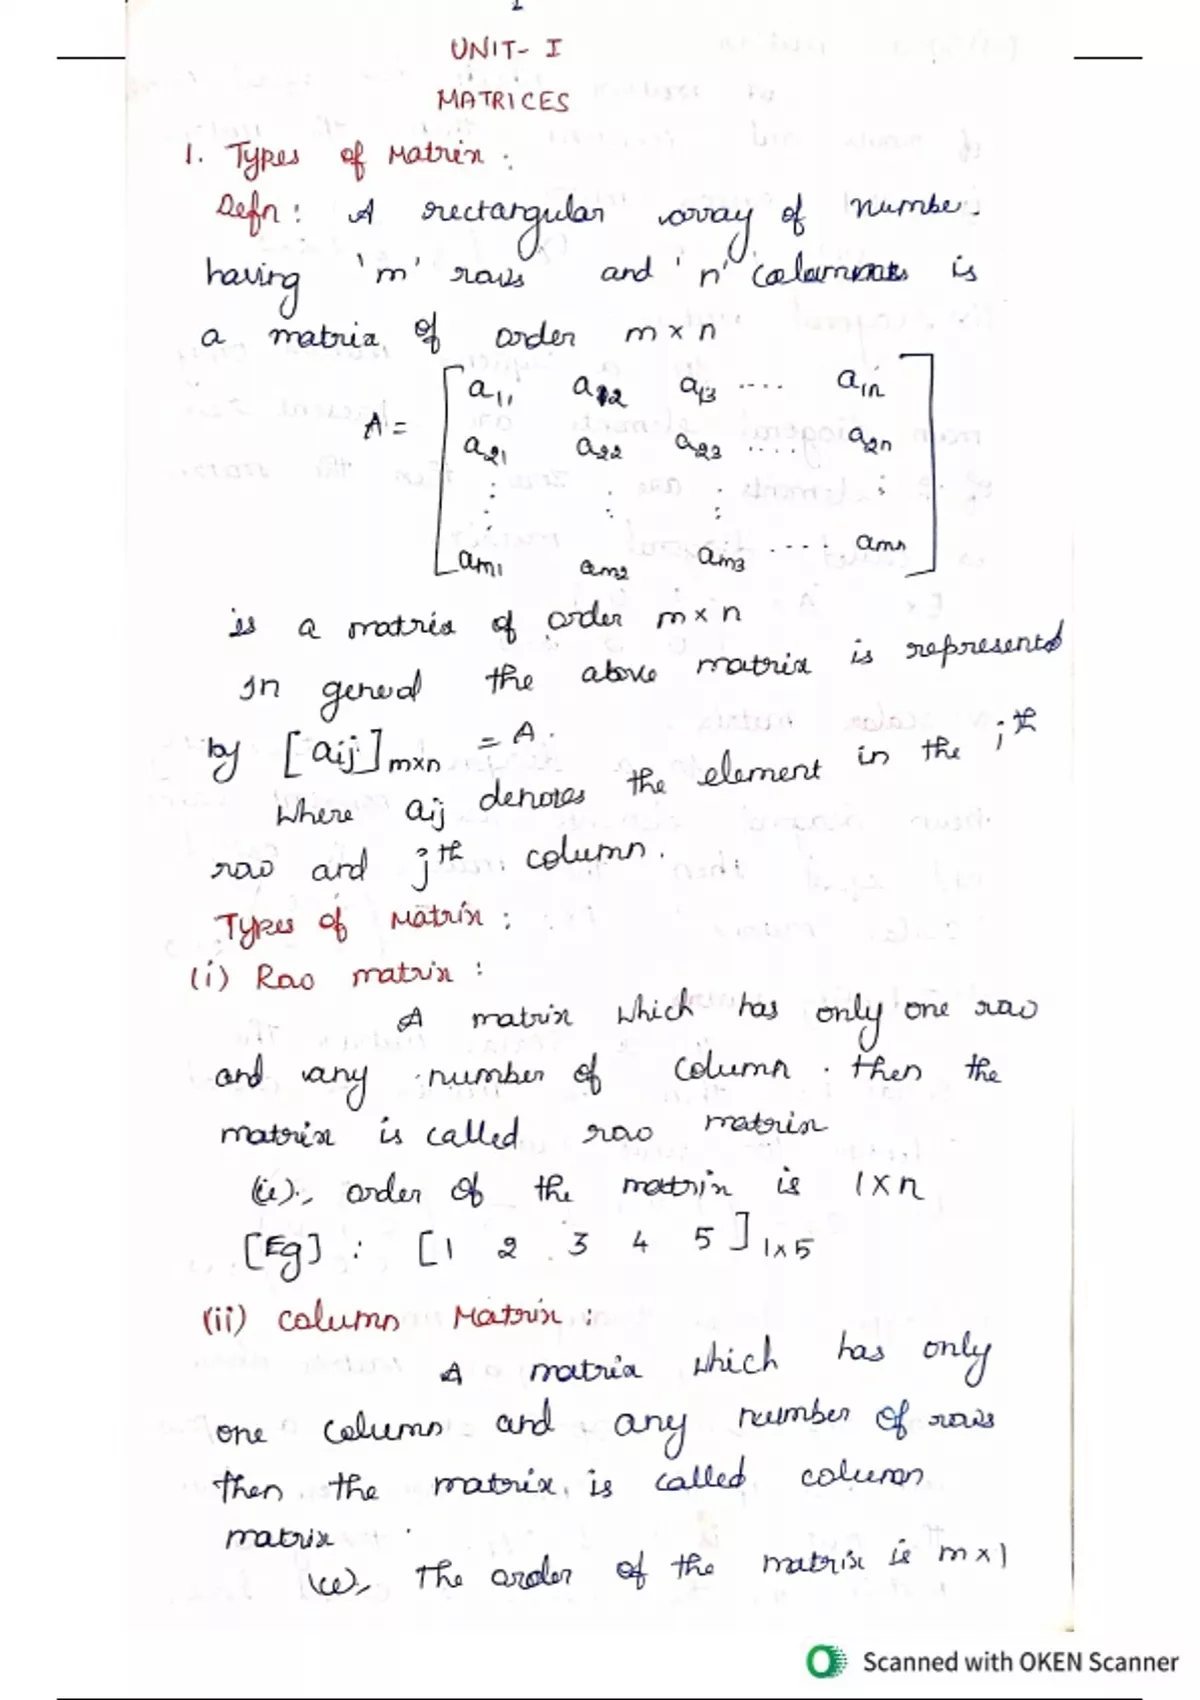 1
UNIT- I
MATRICES
1. Types of Matrix :
Defn : A rectangular array of number.
having 'm' rows and 'n' columns is
a matrix of order m × n
A = [ a11 a12 a13 .... a1n
a21 a22 a23 .... a2n
: : : :
am1 am2 am3 .... amn ]
is a matrix of order m × n
In general the above matrix is represented
by [aij]m×n = A.
Where aij denotes the element in the ith
row and jth column.
Types of Matrix :
(i) Row matrix :
A matrix which has only one row
and any number of column . then the
matrix is called row matrix
(ie)., order of the matrix is 1×n
[Eg] : [1 2 3 4 5]1×5
(ii) column Matrix :
A matrix which has only
one column and any number of rows
then the matrix is called column
matrix
(ie), The order of the matrix is m×1
Scanned with OKEN Scanner